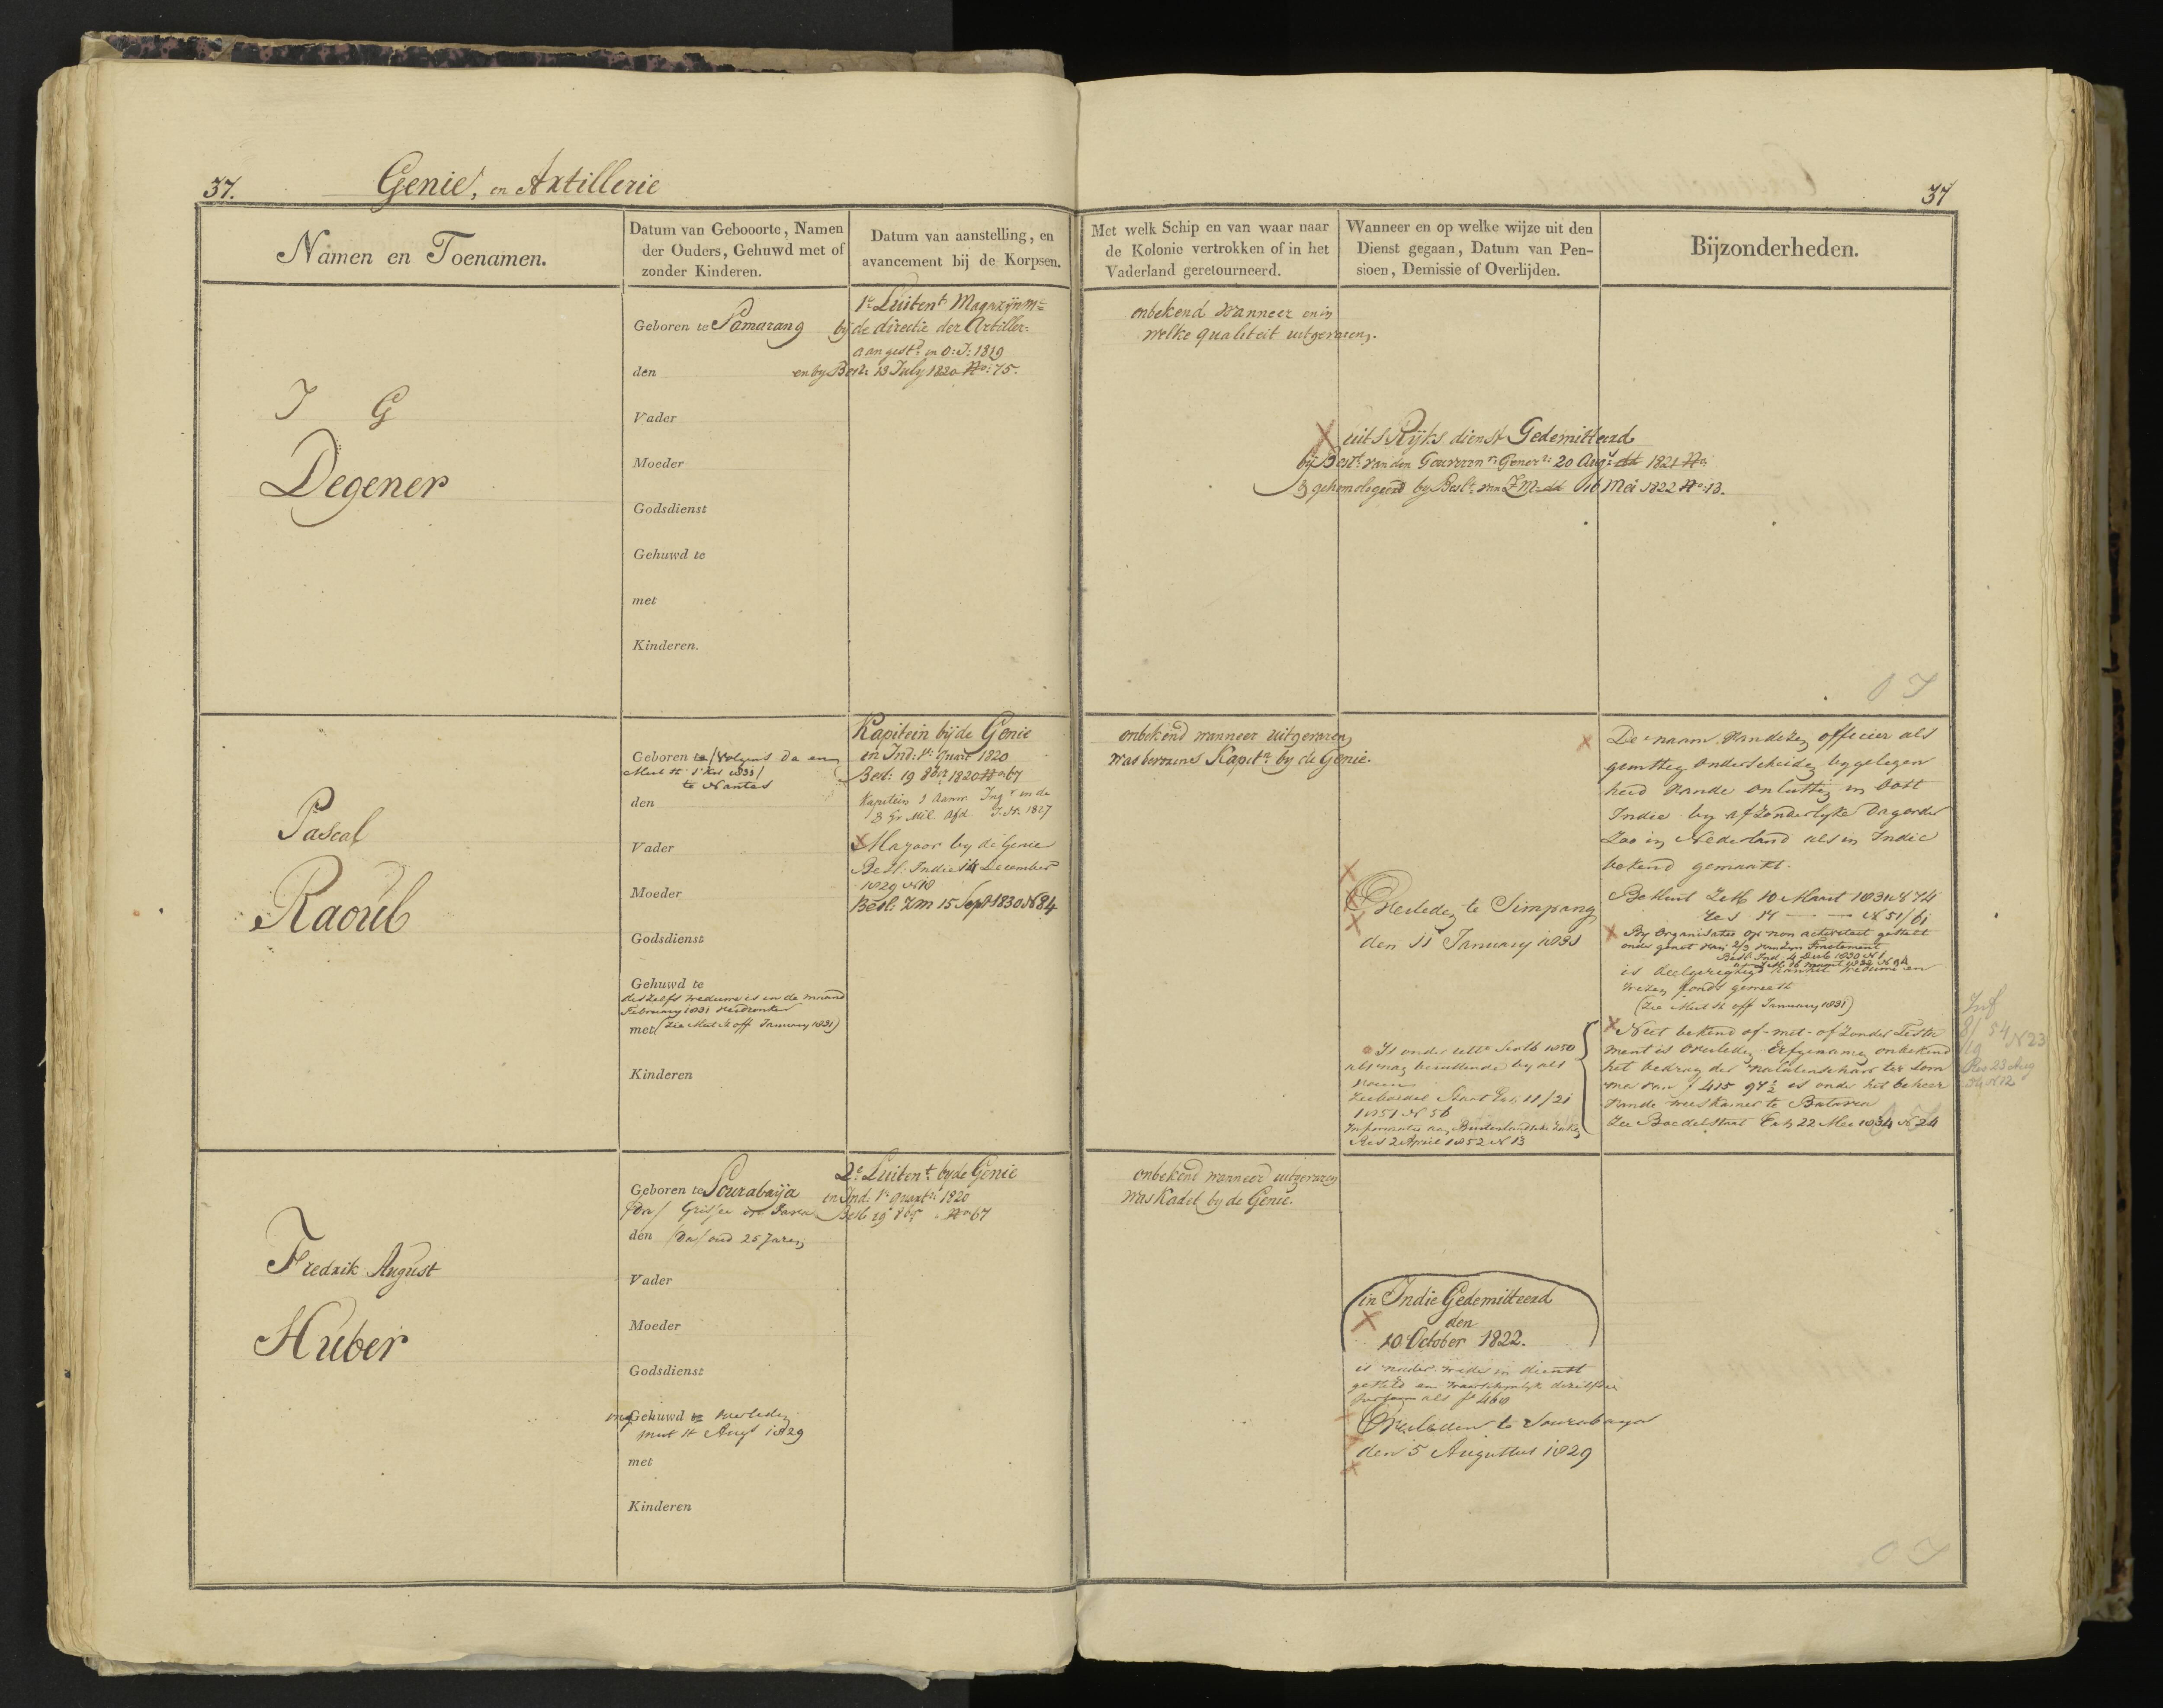 37.
Genie, en Artillerie
37
Namen en Toenamen.
Datum van Gebooorte, Namen
der Ouders, Gehuwd met of
zonder Kinderen.
Datum van aanstelling, en
avancement bij de Korpsen.
Met welk Schip en van waar naar
de Kolonie vertrokken of in het
Vaderland geretourneerd.
Wanneer en op welke wijze uit den
Dienst gegaan, Datum van Pen-
sioen, Demissie of Overlijden.
Bijzonderheden.
J G
Degener
Geboren te Samarang
den
Vader
Moeder
Godsdienst
Gehuwd te
met
Kinderen.
1e Luitent Magazijnmr
bij de directie der Artiller:
aangestd in O:I: 1819
en by Besl: 13 July 1820 No: 75.
onbekend wanneer en in
welke qualiteit uitgevaren.
uit s Rijks dienst Gedemitteerd
bij Beslt van den Gouvern: Gener: 20 Augt dd 1821 No
3 gehomologeerd by Beslt van ZM dd 16 Mei 1822 No 13.
O I
Pascal
Raoul
Geboren te (volgens da en
Mut st 1e Kw 1831)
te Nantes
den
Vader
Moeder
Godsdienst
Gehuwd te
deszelfs weduwe is in de maand
February 1831 verdronken
met (Zie Mut st off January 1831)
Kinderen
Kapitein bij de Genie
in Ind: 1e quart 1820
Besl: 19 8ber 1820 No 67
Kapitein 1 Aanw. Ingr in de
3 Gr Mil. Afd. J. N. 1827
Mayoor by de Genie
Besl: Indie 14 December
1829 N 18
Besl: ZM 15 Sept 1830 N 84
onbekend wanneer uitgevaren
was bevorens Kapitn by de Genie.
Overleden te Simpang
den 11 January 1831
Is onder ulto 1850
als nog berustende by als
voren
Zee boedel Staat 11/21
1851 N 56
Informatie aan Buitenlandsche Zaken
Res 2 April 1852 N 13
De naam van dezen officier als
gunstig onderscheiden by gelegen
heid van de onlusten in Oost
Indie by afzonderlyke Dagorder
Zoo in Nederland als in Indie
bekend gemaakt.
Besluit ZM 10 Maart 1831 N 74
Res 14 — — N 51/61
By Organisatie op non activiteit gesteld
onder genot van 2/3 van zyn Tractement
Besl. Ind. 4 Decb 1830 N 1
is deelgeregtigd van het weduwe en
wezen fonds geweest
(Zie Mut st off January 1831)
Niet bekend of met of zonder Testa
ment is overleden Erfgenamen onbekend
het bedrag der nalatenschap ter som
ma van f 415 97½ is onder het beheer
van de weeskamer te Batavia
Zie Boedelstaat Exh 22 Mei 1834 N 24
Inf
8/19 54 N 23
Res 23 Aug
N 12
Fredrik August
Huber
Geboren te Sourabaija
(Da) Grissee op Java
den (Da) oud 25 Jaren
Vader
Moeder
Godsdienst
ong Gehuwd te overleden
mut st Augt 1829
met
Kinderen
2e Luitent by de Genie
in Ind: 1e quart: 1820
Besl 19 8ber No 67
onbekend wanneer uitgevaren
was Kadet by de Genie.
in Indie Gedemitteerd
den
10 October 1822.
is nader weder in dienst
gesteld en waarschynlyk dezelfde
persoon als fo 460
Overleden te Sourabaya
den 5 Augustus 1829
O I